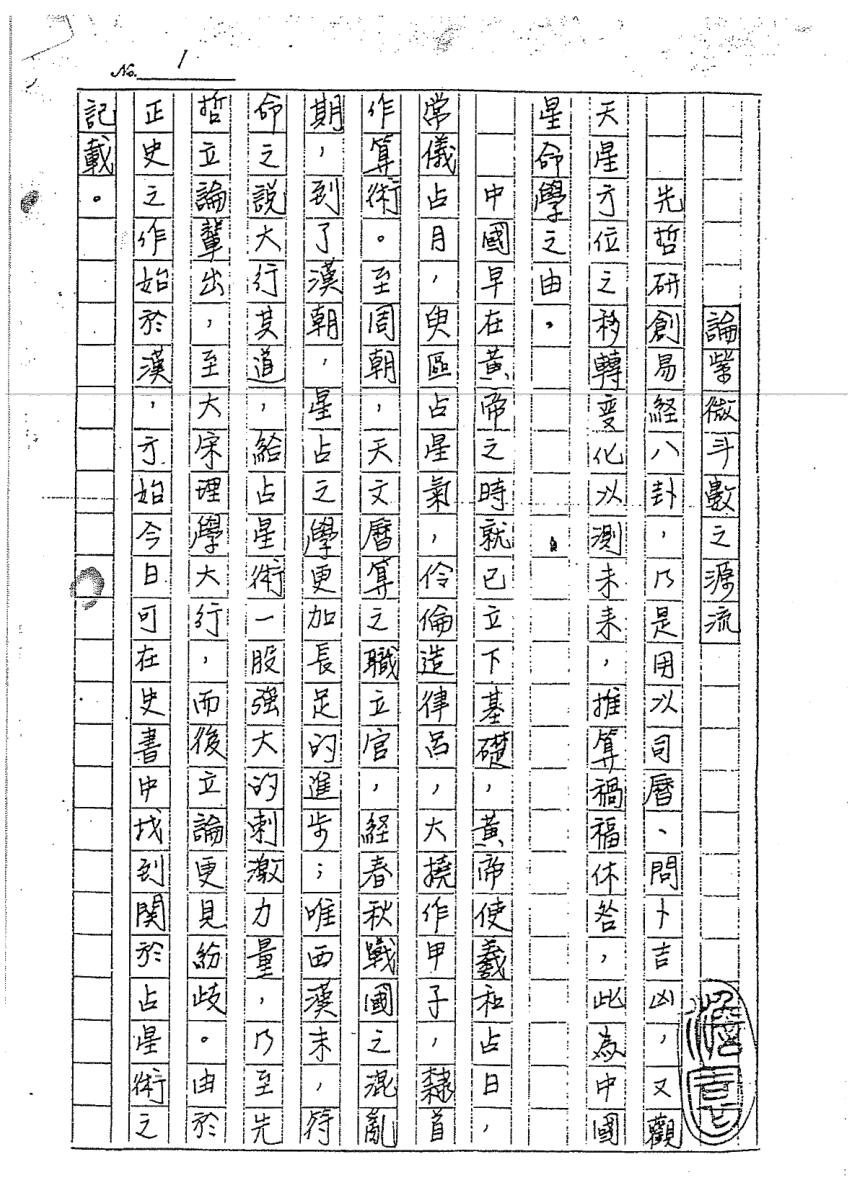 No. 1
論紫微斗數之源流
先哲研創易経八卦，乃是用以司曆、問卜吉凶，又觀
天星方位之移轉变化以測未来，推算禍福休咎，此為中國
星命學之由。
中國早在黃帝之時就已立下基礎，黃帝使羲和占日，
常儀占月，臾區占星氣，伶倫造律呂，大撓作甲子，隸首
作算術。至周朝，天文曆算之職立官，経春秋戰國之混亂
期，到了漢朝，星占之學更加長足的進步；唯西漢末，符
命之說大行其道，給占星術一股強大的刺激力量，乃至先
哲立論輩出，至大宋理學大行，而後立論更見紛歧。由於
正史之作始於漢，方始今日可在史書中找到関於占星術之
記載。